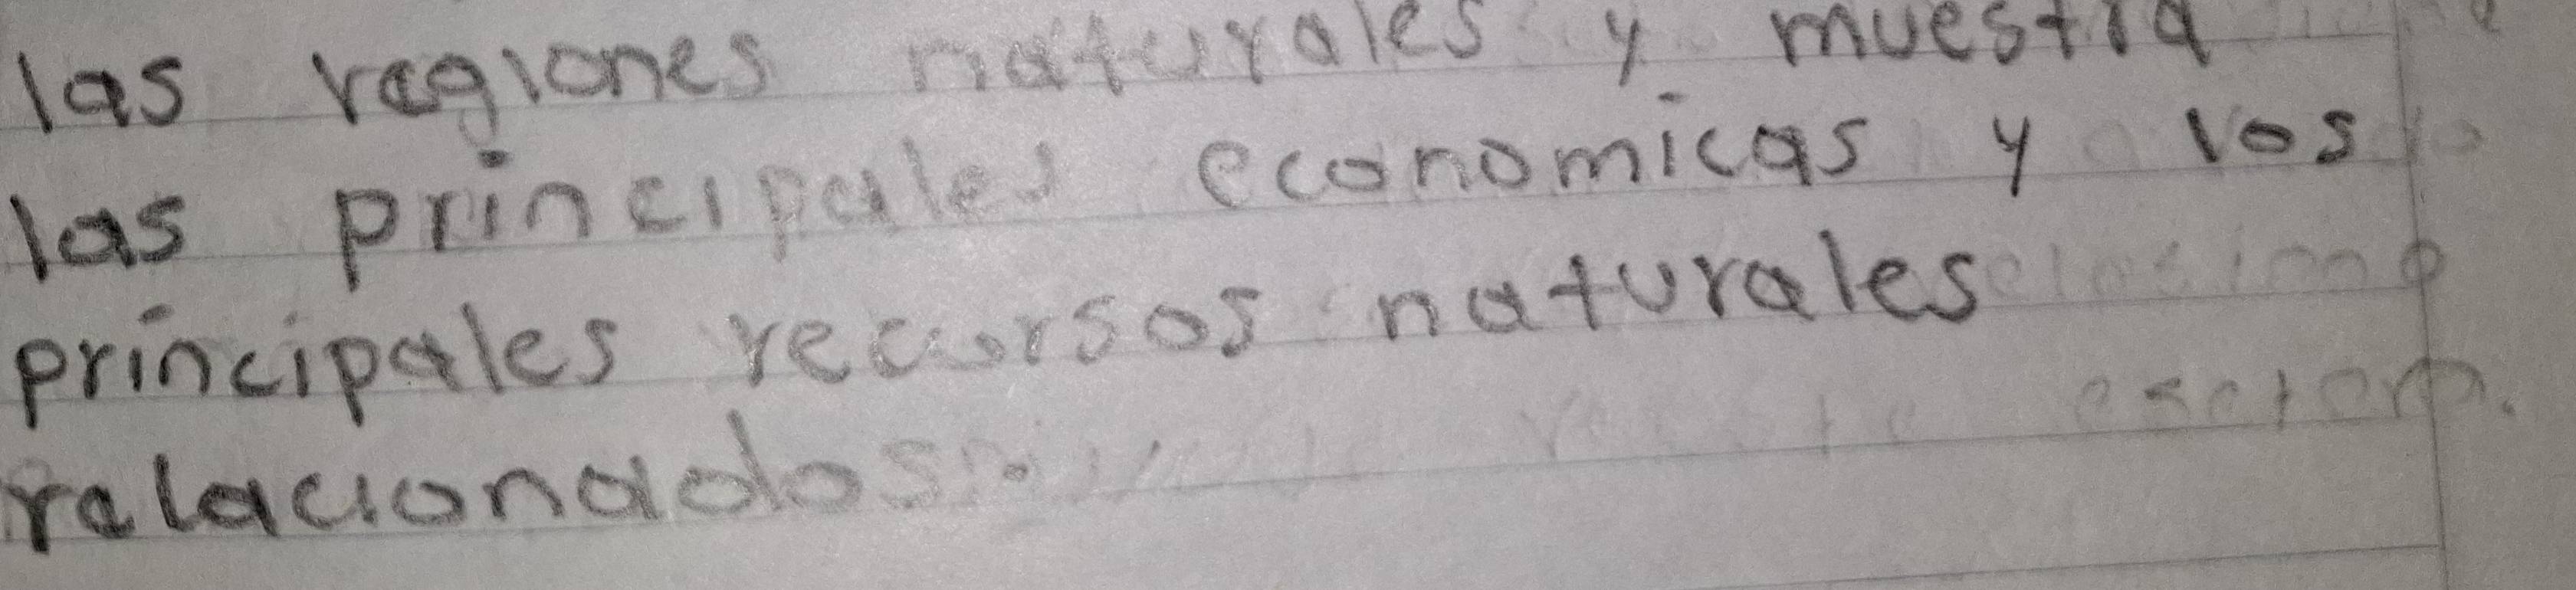 las regiones naturales y muestra
las principales economicas y los
principales recursos naturales
relacionados.